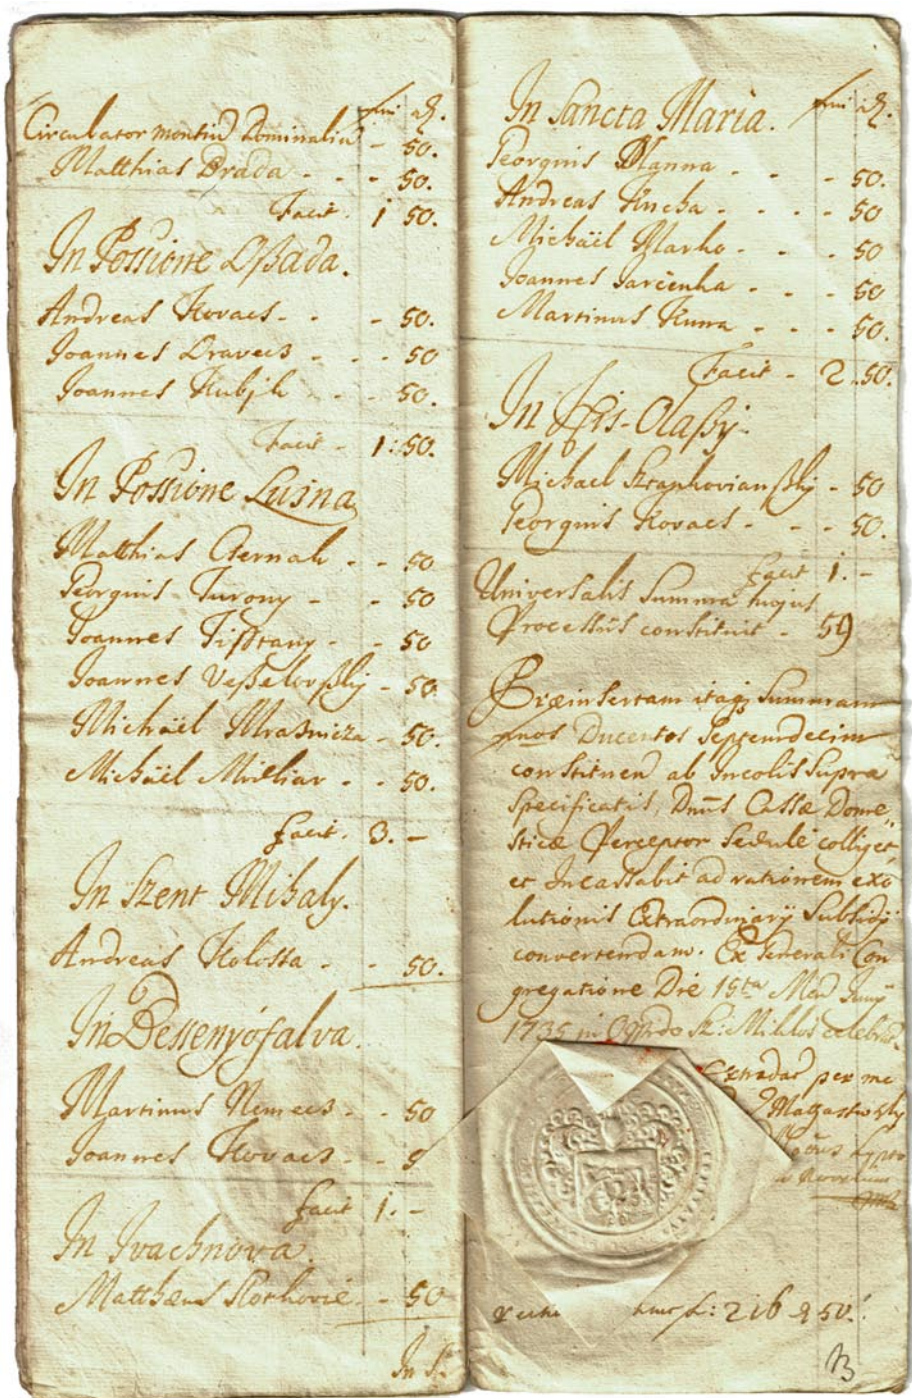 fni d.
Circulator montium Dominalium - 50.
Matthias Brada - - - 50.
Facit. 1 50.
In Possione Lißada.
Andreas Kovacs - - - 50.
Joannes Dravecz - - - 50
Joannes Kubjk - - - 50.
Facit - 1: 50.
In Possione Lusna
Matthias Csernak - - 50
Georgius Turony - - 50
Joannes Tißtany - - 50
Joannes Veßelovßky - 50.
Michäel Mrasnicza - 50.
Michäel Milliar - - 50.
facit. 3. -
In Szent Mihaly.
Andreas Kolossa - - 50.
In Bessenyőfalva.
Martinus Nemecz - - 50
Joannes Kovacs - -
facit 1. -
In Ivachnova.
Matthaeus - 50
In S:
In Sancta Maria. fni d.
Georgius Manna - - - 50.
Andreas Kucha - - - - 50
Michäel Marko - - - 50
Joannes Jarcenka - - - 50
Martinus Kuna - - - 50.
Facit - 2. 50.
In Kis-Olaßy.
Michael - 50
Georgius Kovacs - - - 50.
facit 1. -
Universalis Summa hujus
Processûs constituit - 59
Præinsertam itaq Summam
fnos Ducentos Septemdecim
constituen ab Incolis Supra
Specificatis, Dnus Cassæ Dome„
sticæ Perceptor Sedulè colliget
et Incassabit ad rationem exo
lutionis Extraordinarÿ Subsidÿ
convertendam. Ex Generali Con
gregatione Die 15ta Men Junÿ
1735 in Oppdo Sz: Miklos celebrat.
Extradat per me
fl: 216 d 50.
13